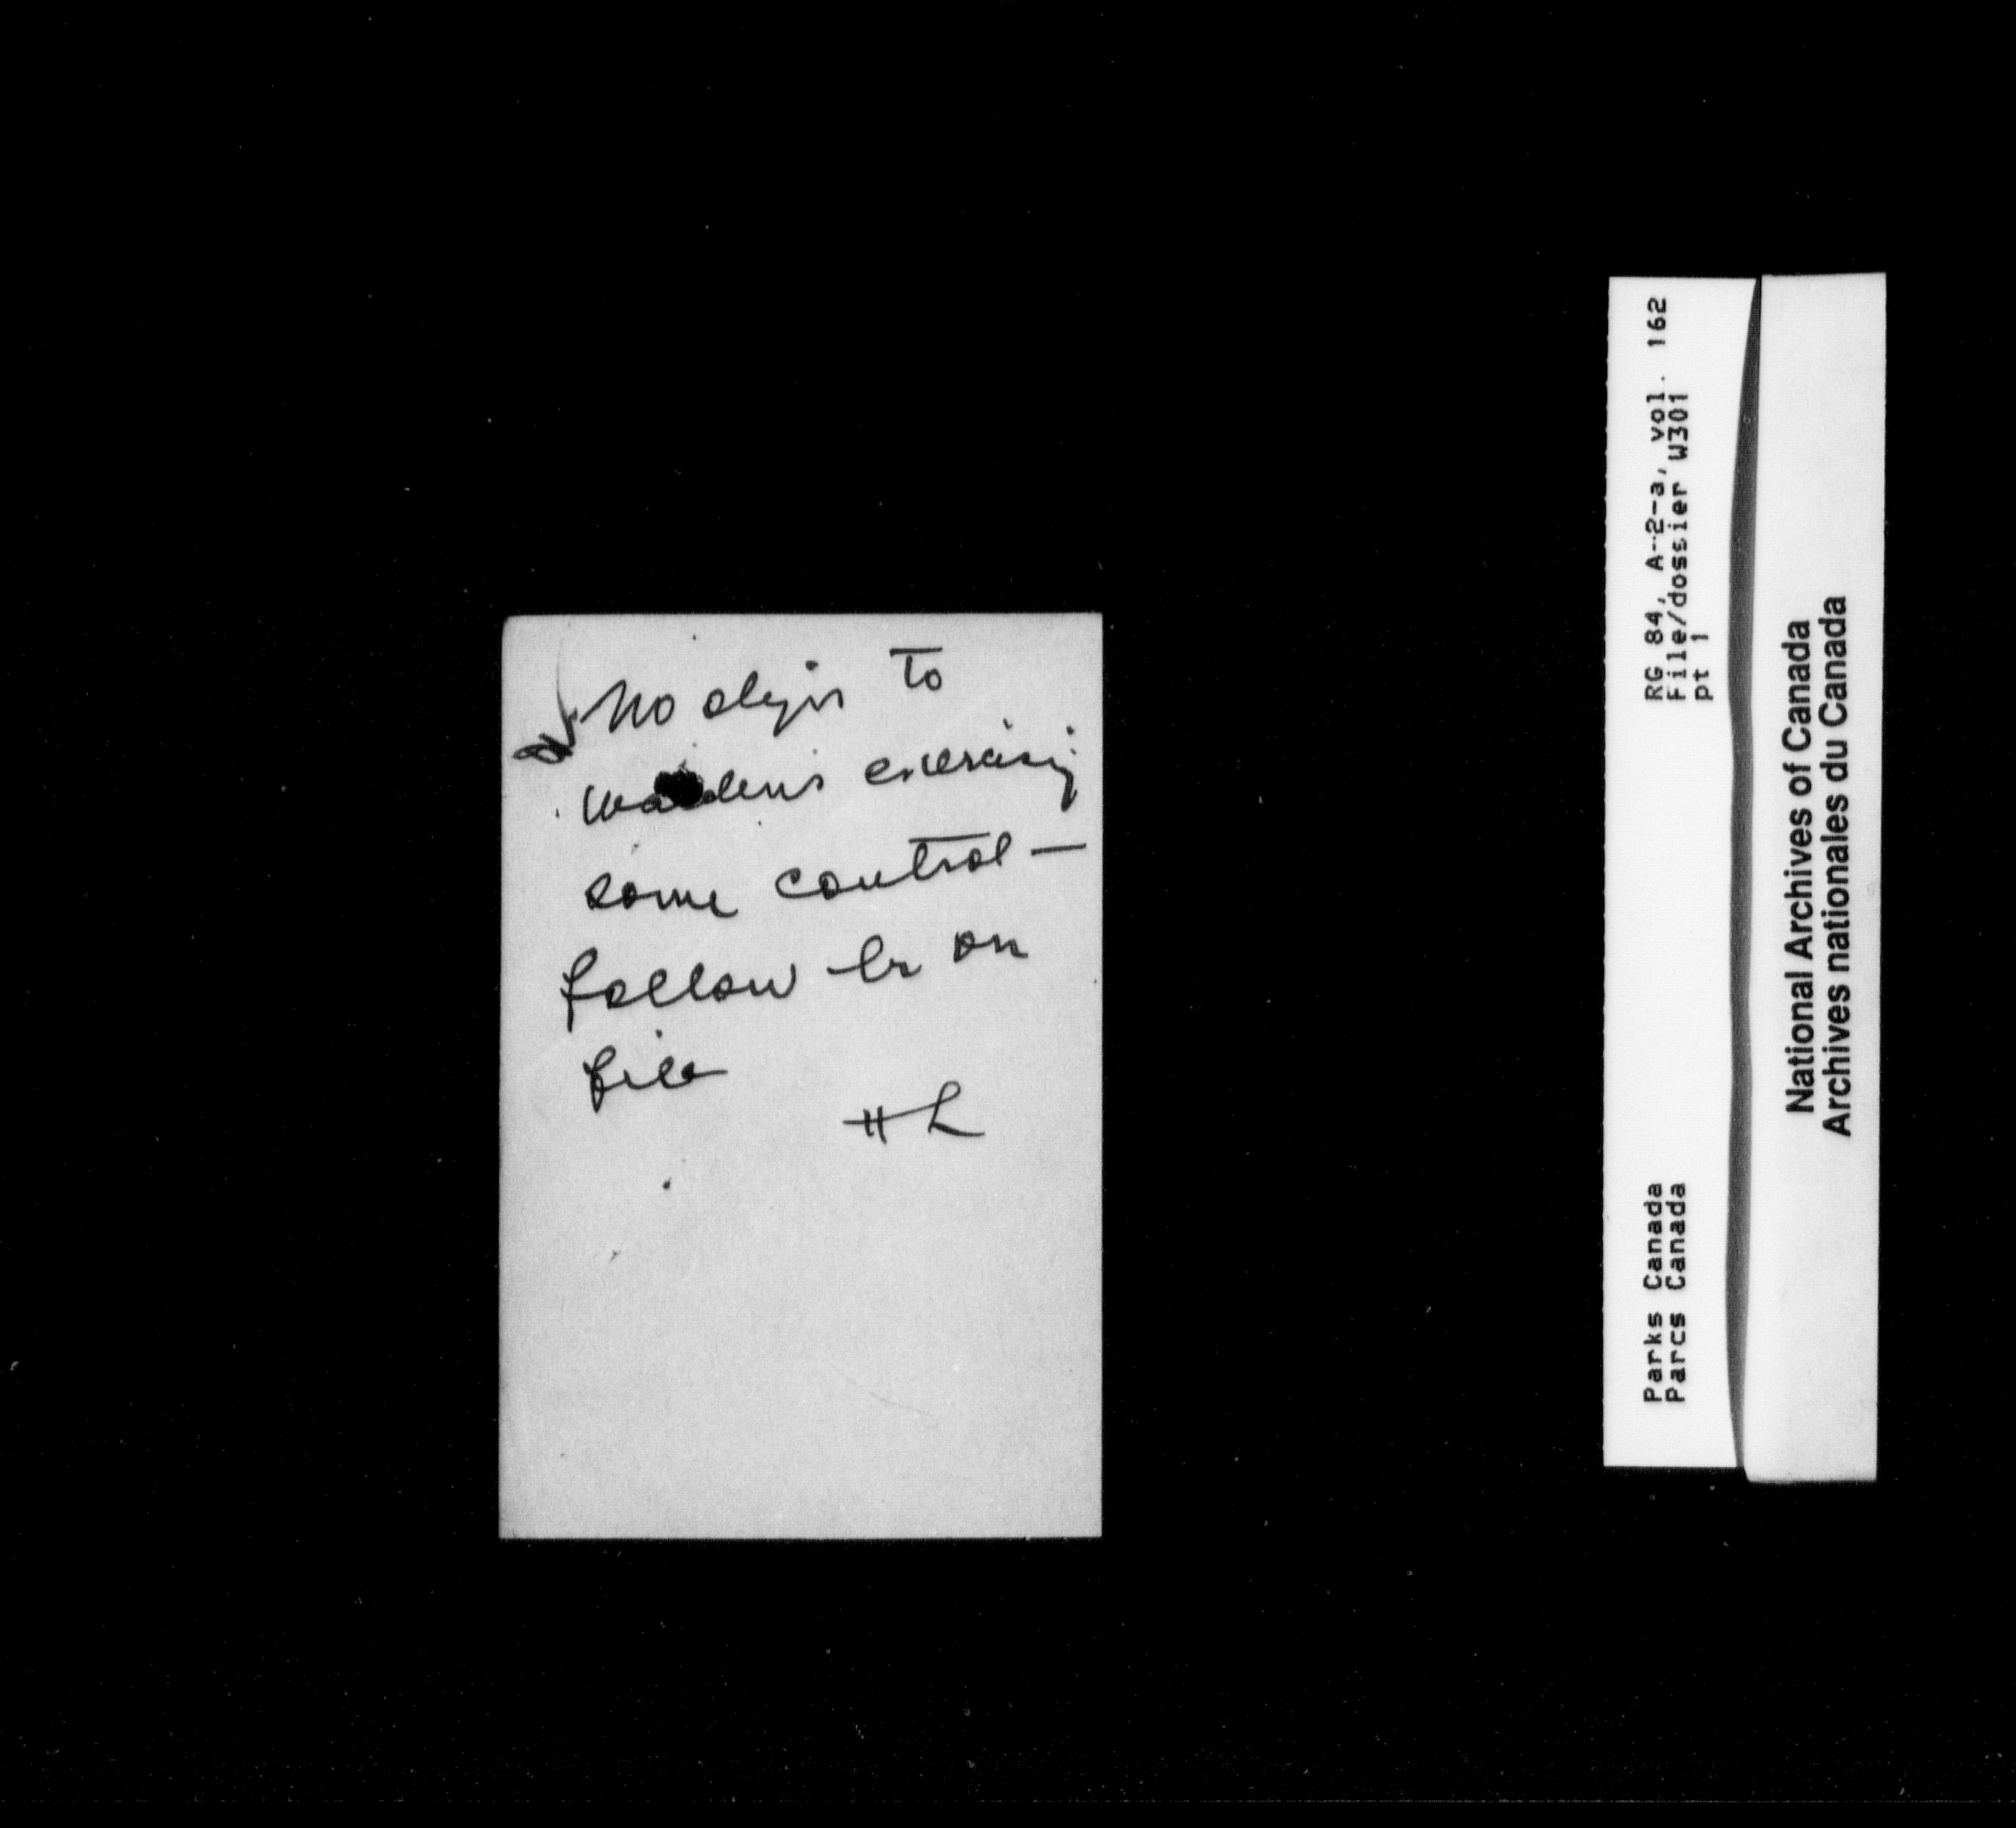 No objn to
wardens exercising
some control —
follow lr on
file
HL
RG 84, A-2-a, vol. 162
File/dossier W301
pt 1
Parks Canada
Parcs Canada
National Archives of Canada
Archives nationales du Canada